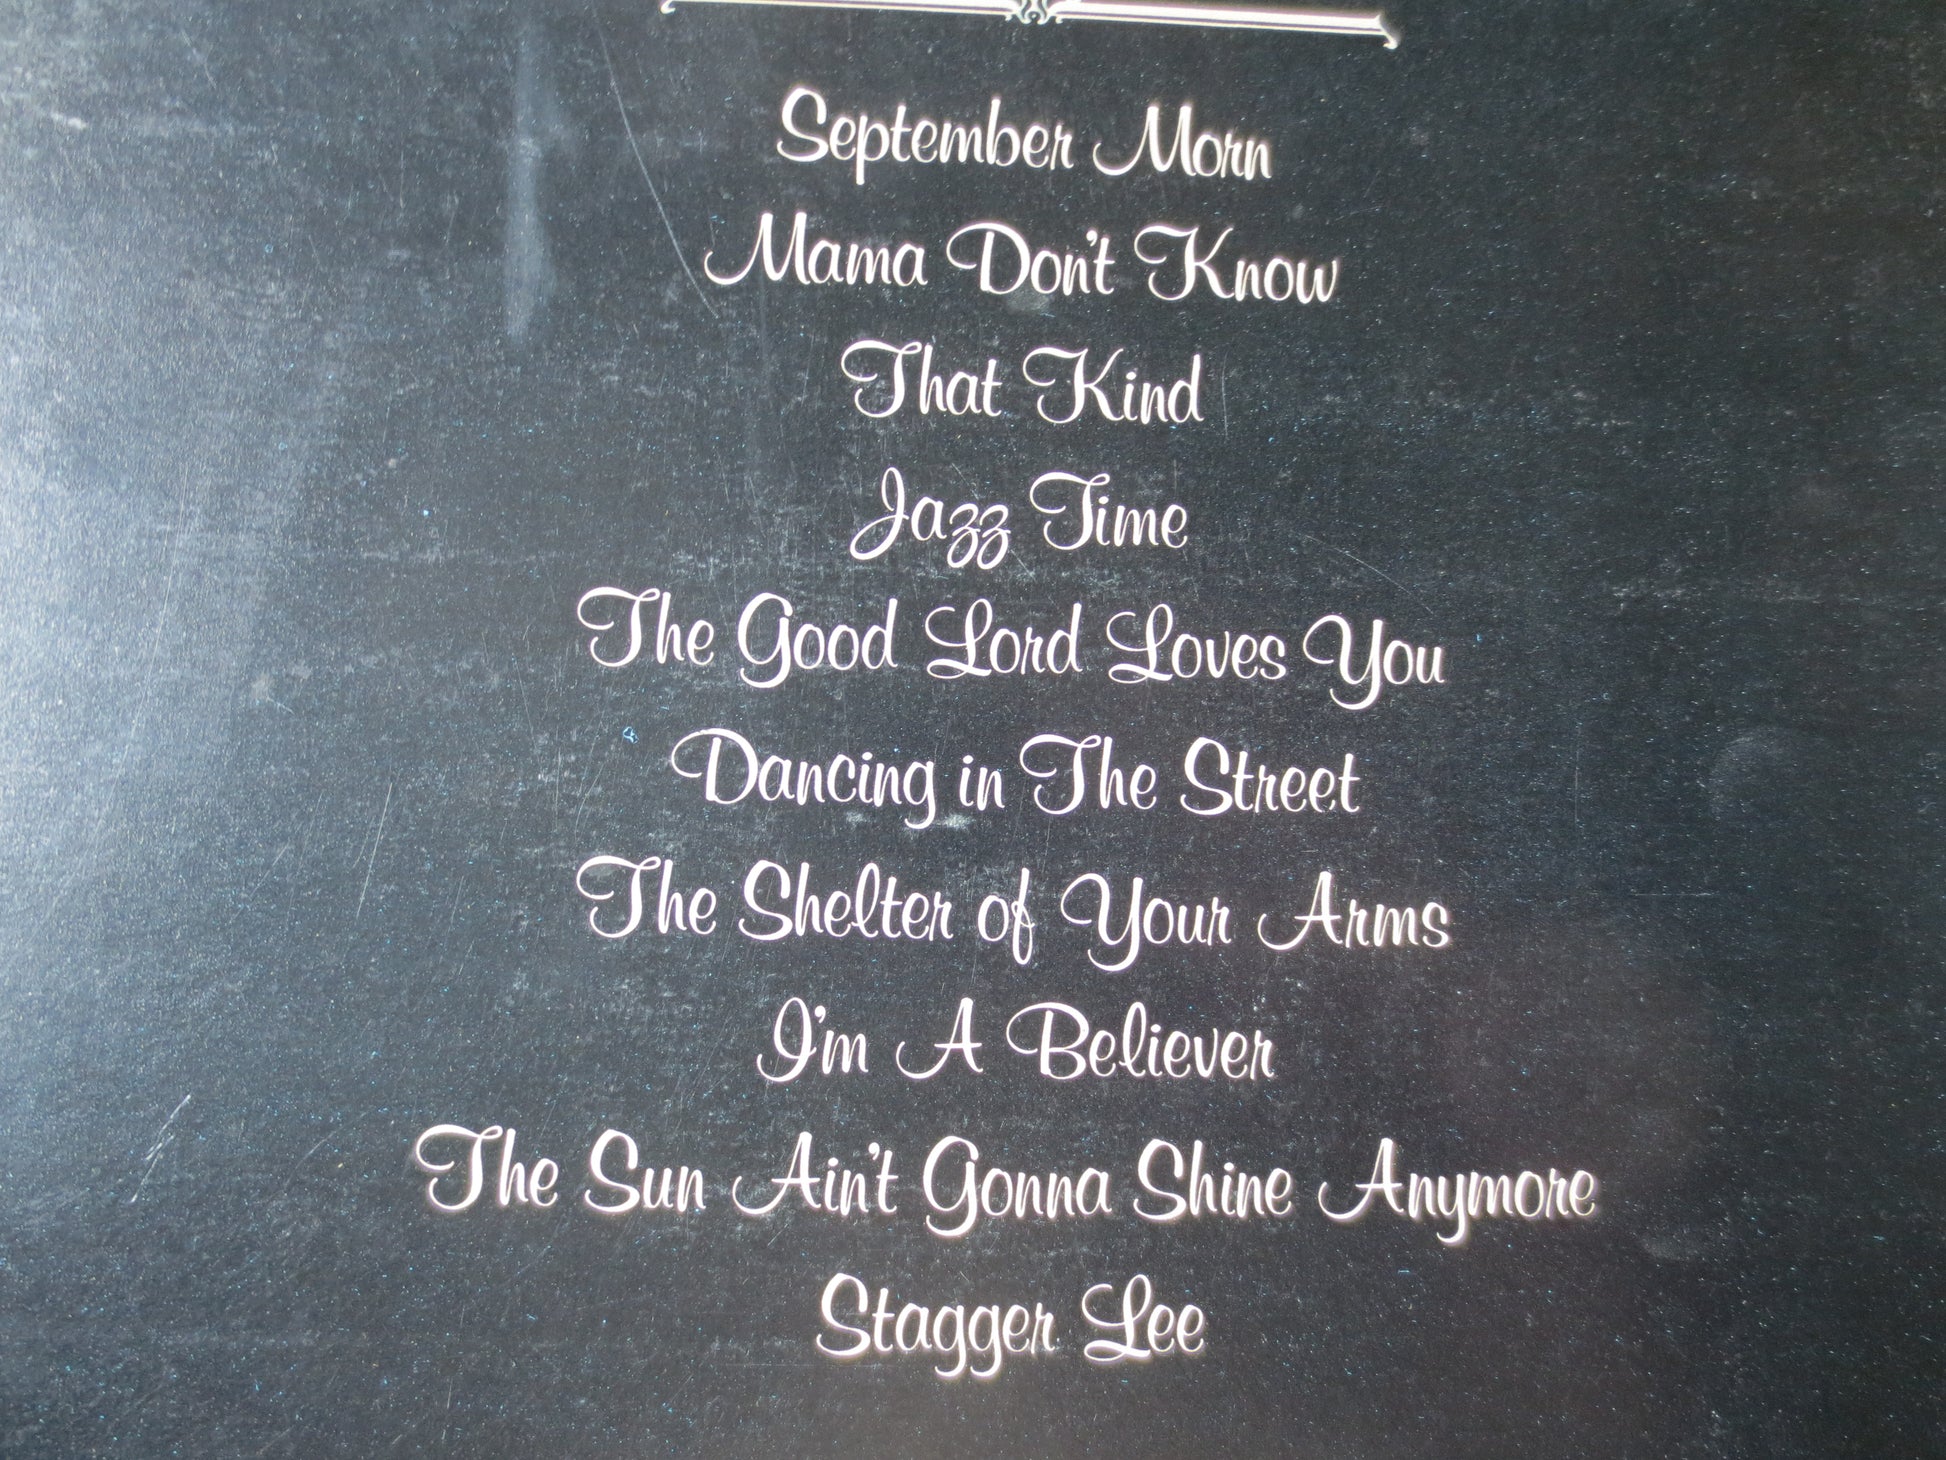 September Morn
Mama Don't Know
That Kind
Jazz Time
The Good Lord Loves You
Dancing in The Street
The Shelter of Your Arms
I'm A Believer
The Sun Ain't Gonna Shine Anymore
Stagger Lee